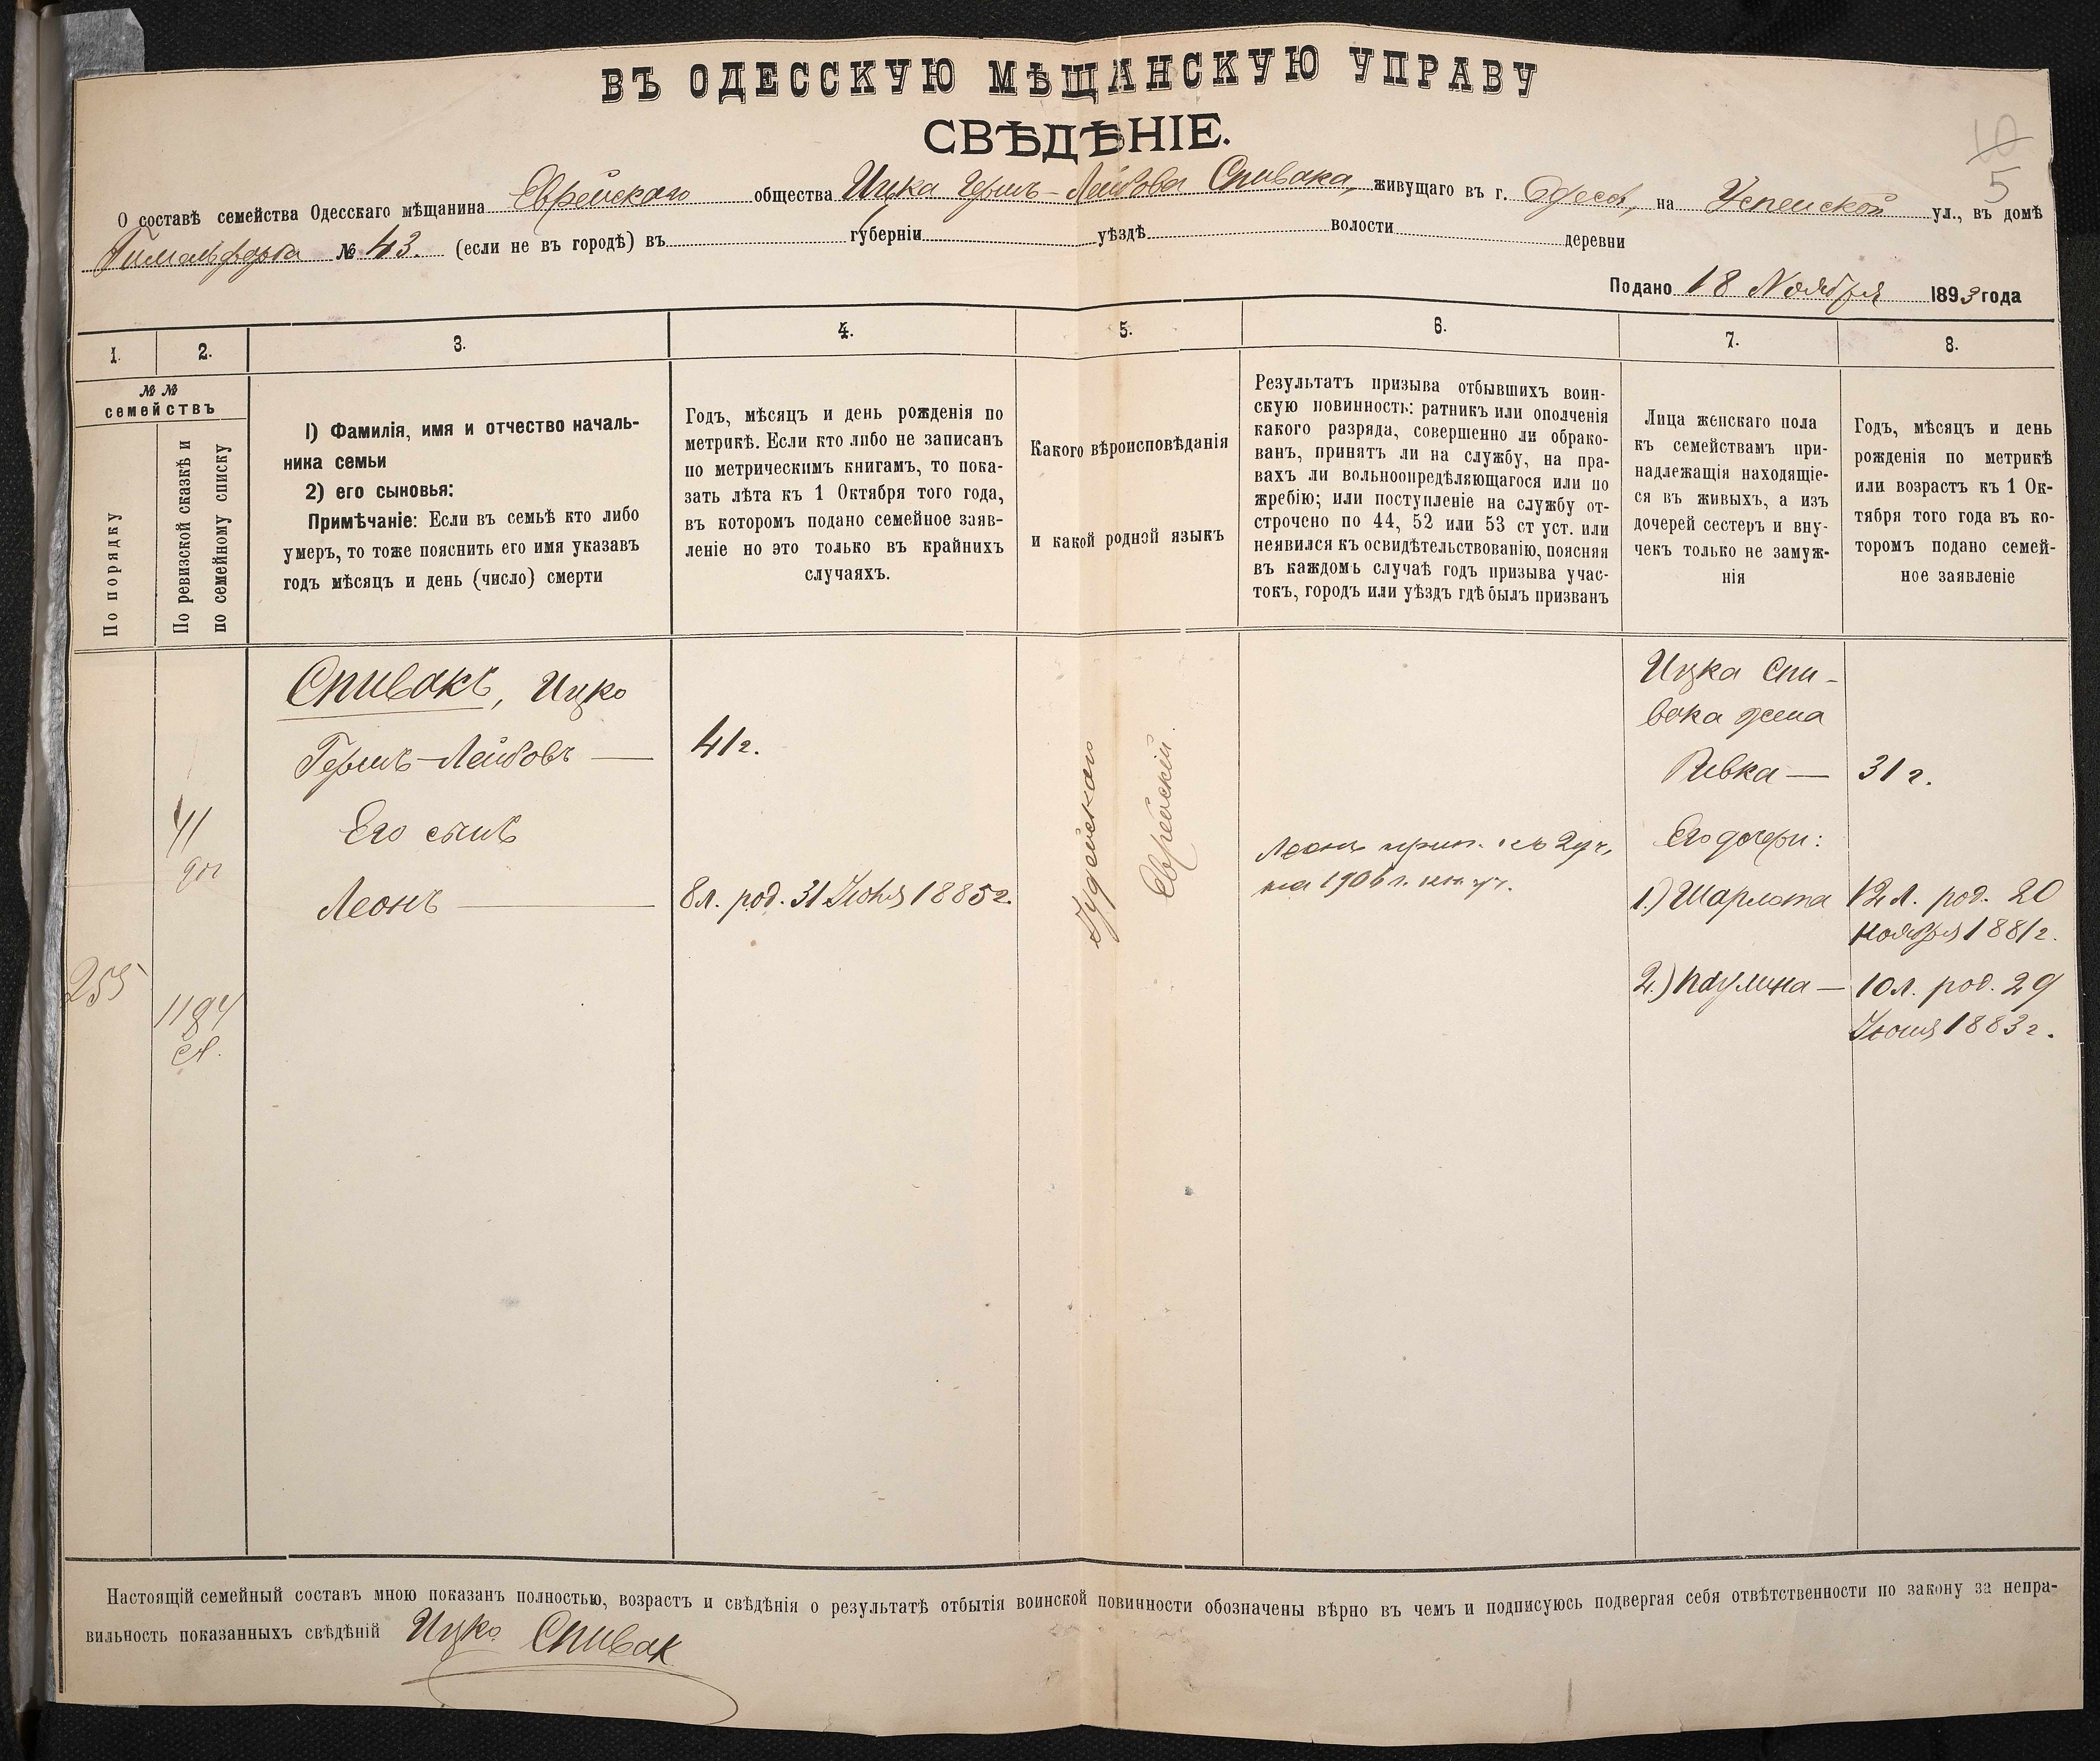 ВЪ ОДЕССКУЮ МѢЩАНСКУЮ УПРАВУ
СВѢДѢНІЕ.
5
О составѣ семейства Одесскаго мѣщанина Еврейскаго общества Ицка Герш-Лейбова Спивака, живущаго въ г. Одесѣ, на Успенской ул., въ домѣ
№ 43. (если не въ городѣ) въ губерніи уѣздѣ волости деревни
Подано 18 Ноября 1893 года
1.
2.
3.
4.
5.
6.
7.
8.
№№
семействъ
По порядку
По ревизской сказкѣ и
по семейному списку
1) Фамилія, имя и отчество началь-
ника семьи
2) его сыновья:
Примѣчаніе: Если въ семьѣ кто либо
умеръ, то тоже пояснить его имя указавъ
годъ мѣсяцъ и день (число) смерти
Годъ, мѣсяцъ и день рожденія по
метрикѣ. Если кто либо не записанъ
по метрическимъ книгамъ, то пока-
зать лѣта къ 1 Октября того года,
въ которомъ подано семейное заяв-
леніе но это только въ крайнихъ
случаяхъ.
Какого вѣроисповѣданія
и какой родной языкъ
Результатъ призыва отбывшихъ воин-
скую повинность: ратникъ или ополченія
какого разряда, совершенно ли обрако-
ванъ, принятъ ли на службу, на пра-
вахъ ли вольноопредѣляющагося или по
жребію; или поступленіе на службу от-
строчено по 44, 52 или 53 ст уст. или
неявился къ освидѣтельствованію, поясняя
въ каждомъ случаѣ годъ призыва учас-
токъ, городъ или уѣздъ гдѣ былъ призванъ
Лица женскаго пола
къ семействамъ при-
надлежащія находящіе-
ся въ живыхъ, а изъ
дочерей сестеръ и вну-
чекъ только не замуж-
нія
Годъ, мѣсяцъ и день
рожденія по метрикѣ
или возрастъ къ 1 Ок-
тября того года въ ко-
торомъ подано семей-
ное заявленіе
255
1194
Спивакъ, Ицко
Гершъ-Лейбовъ —
41 г.
Его сынъ
Леонъ —
8 л. род. 31 Іюля 1885 г.
Іудейскаго
Еврейскій.
Леонъ
на 1906 г.
Ицка Спи-
вака жена
Ривка —
31 г.
Его дочери:
1.) Шарлота
12 л. род. 20
ноября 1881 г.
2.) Паулина —
10 л. род. 29
1883 г.
Настоящій семейный составъ мною показанъ полностью, возрастъ и свѣдѣнія о результатѣ отбытія воинской повинности обозначены вѣрно въ чемъ и подписуюсь подвергая себя отвѣтственности по закону за непра-
вильность показанныхъ свѣдѣній Ицко Спивак